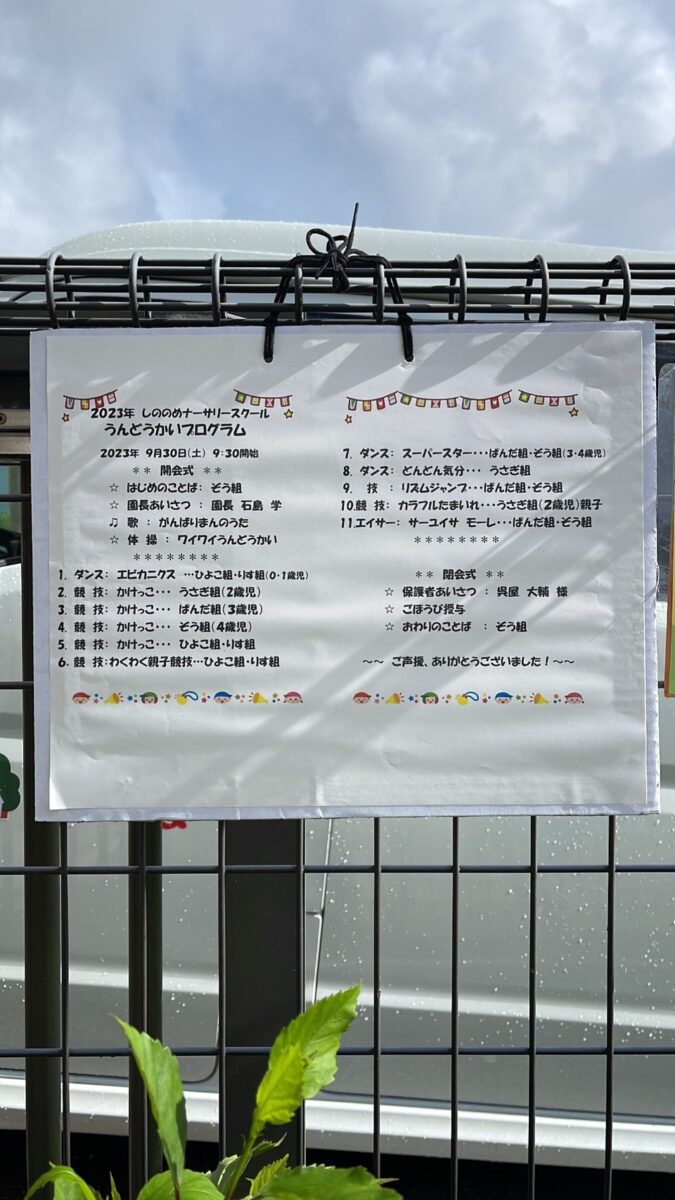 2023年 しののめナーサリースクール
うんどうかいプログラム
2023年 9月30日(土) 9:30開始
** 開会式 **
☆ はじめのことば: ぞう組
☆ 園長あいさつ : 園長 石島 学
♫ 歌 : がんばりまんのうた
☆ 体 操 : ワイワイうんどうかい
********
1. ダンス: エビカニクス …ひよこ組・りす組(0・1歳児)
2. 競 技: かけっこ・・・ うさぎ組(2歳児)
3. 競 技: かけっこ・・・ ぱんだ組(3歳児)
4. 競 技: かけっこ・・・ ぞう組(4歳児)
5. 競 技: かけっこ・・・ ひよこ組・りす組
6. 競 技:わくわく親子競技…ひよこ組・りす組
7. ダンス: スーパースター・・・ぱんだ組・ぞう組(3・4歳児)
8. ダンス: どんどん気分・・・ うさぎ組
9. 技 : リズムジャンプ・・・ぱんだ組・ぞう組
10.競 技: カラフルたまいれ・・・うさぎ組(2歳児)親子
11.エイサー: サーユイサ モーレ・・・ぱんだ組・ぞう組
********
** 閉会式 **
☆ 保護者あいさつ : 呉屋 大輔 様
☆ ごほうび授与
☆ おわりのことば : ぞう組
~~ ご声援、ありがとうございました!~~